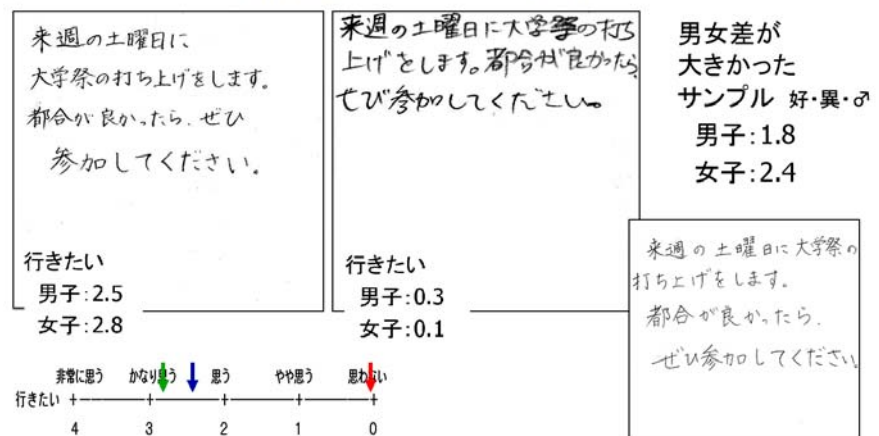 来週の土曜日に
大学祭の打ち上げをします。
都合が良かったら、ぜひ
参加してください。
行きたい
男子:2.5
女子:2.8
来週の土曜日に大学祭の打ち
上げをします。都合が良かったら、
ぜひ参加してください。
行きたい
男子:0.3
女子:0.1
男女差が
大きかった
サンプル 好・異・♂
男子:1.8
女子:2.4
来週の土曜日に大学祭の
打ち上げをします。
都合が良かったら、
ぜひ参加してください。
非常に思う かなり思う 思う やや思う 思わない
行きたい
4 3 2 1 0